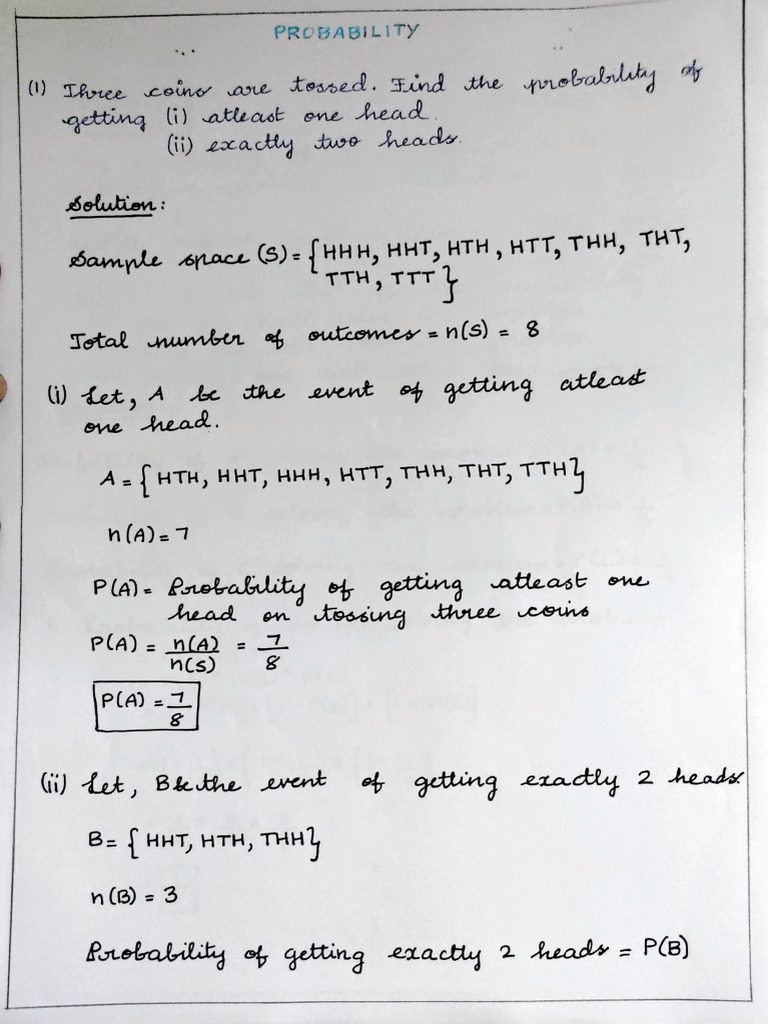 PROBABILITY
(1) Three coins are tossed. Find the probability of
getting (i) atleast one head.
(ii) exactly two heads.
Solution:
Sample space (S) = {HHH, HHT, HTH, HTT, THH, THT,
TTH, TTT}
Total number of outcomes = n(S) = 8
(i) Let, A be the event of getting atleast
one head.
A = {HTH, HHT, HHH, HTT, THH, THT, TTH}
n(A) = 7
P(A) = Probability of getting atleast one
head on tossing three coins
P(A) = n(A)/n(S) = 7/8
P(A) = 7/8
(ii) Let, B be the event of getting exactly 2 heads.
B = {HHT, HTH, THH}
n(B) = 3
Probability of getting exactly 2 heads = P(B)